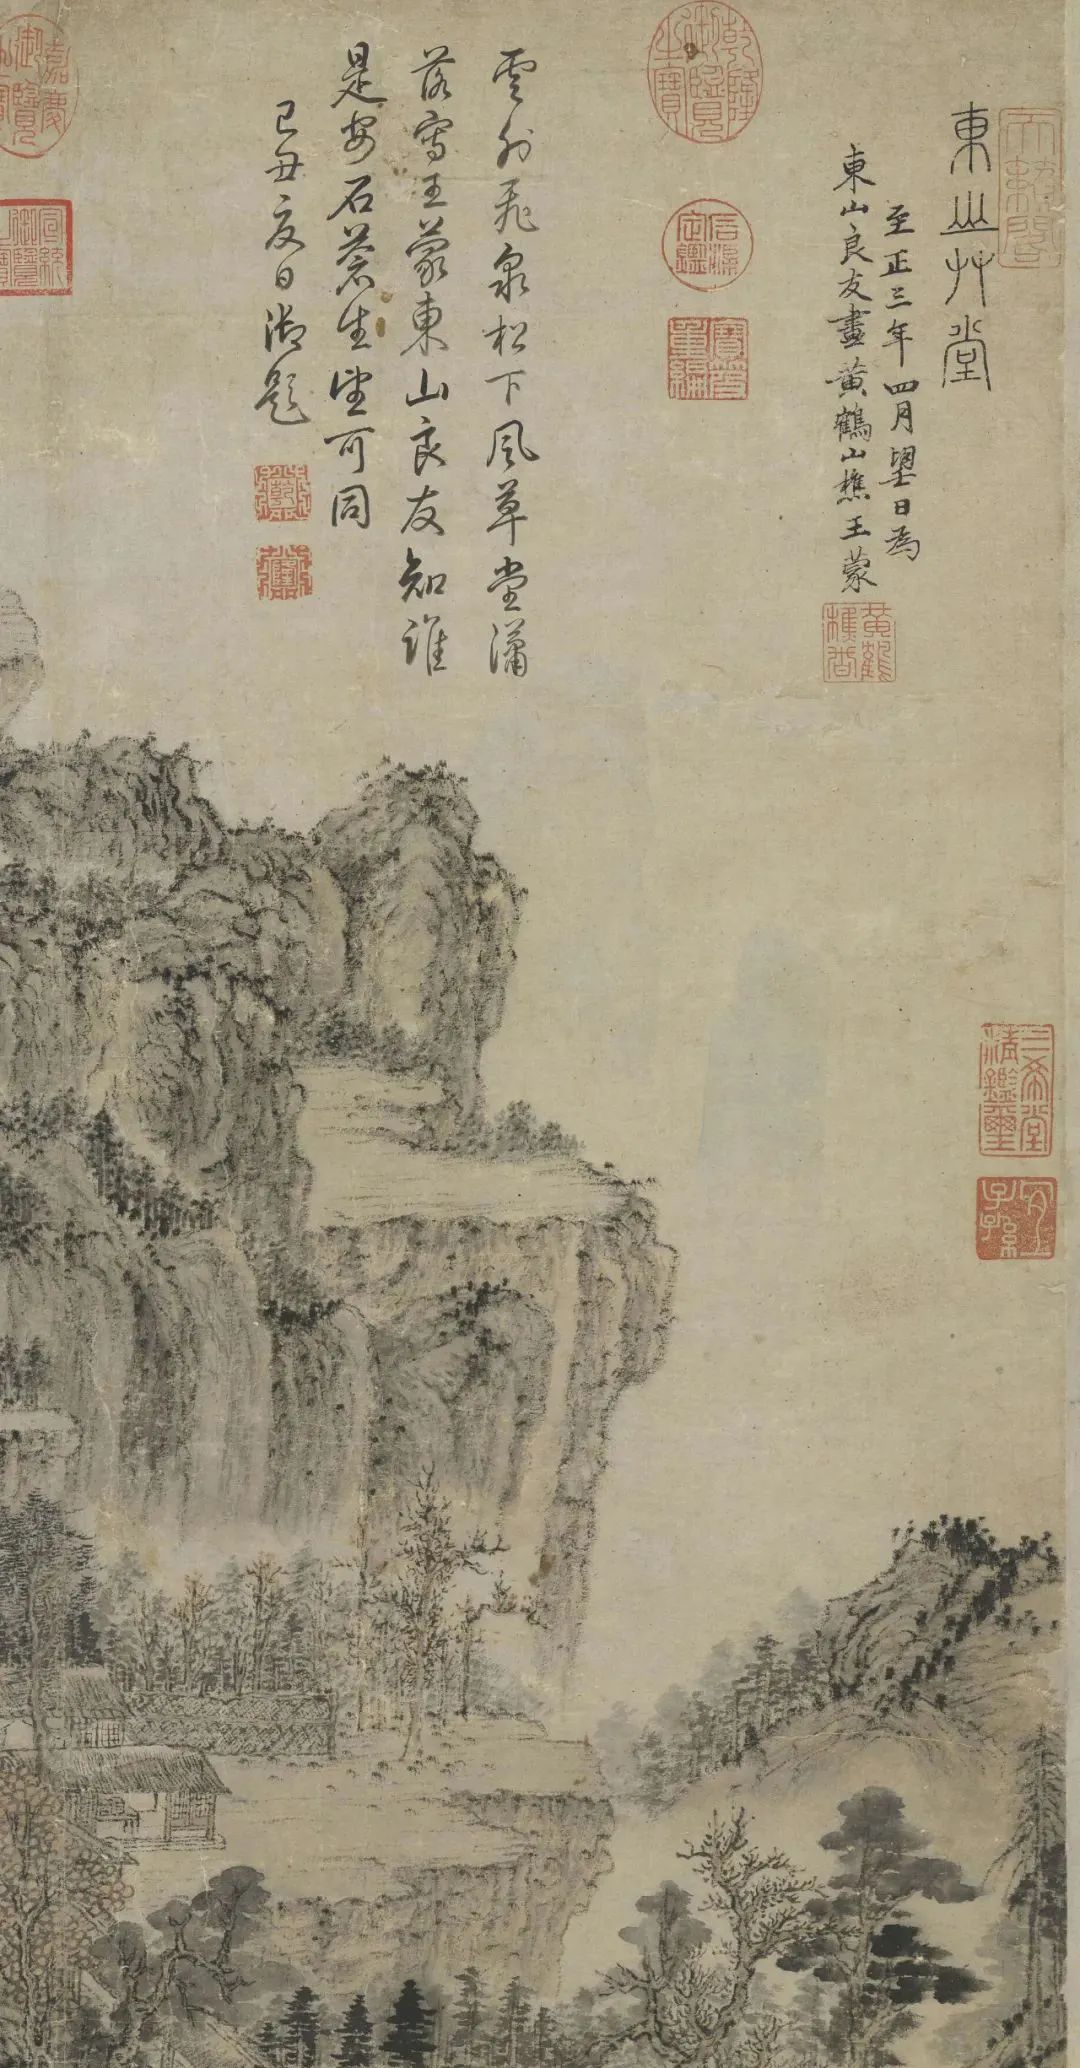 天籟閣
東山艸堂
至正三年四月望日為
東山良友畫黃鶴山樵王蒙
黃鶴樵者
三希堂精鑑璽
宜子孫
乾隆御覽之寶
石渠定鑑
寶笈重編
雲外飛泉松下風草堂瀟
落寫王蒙東山良友知誰
是安石蒼生望可同
己丑夏日御題
嘉慶御覽之寶
宣統御覽之寶